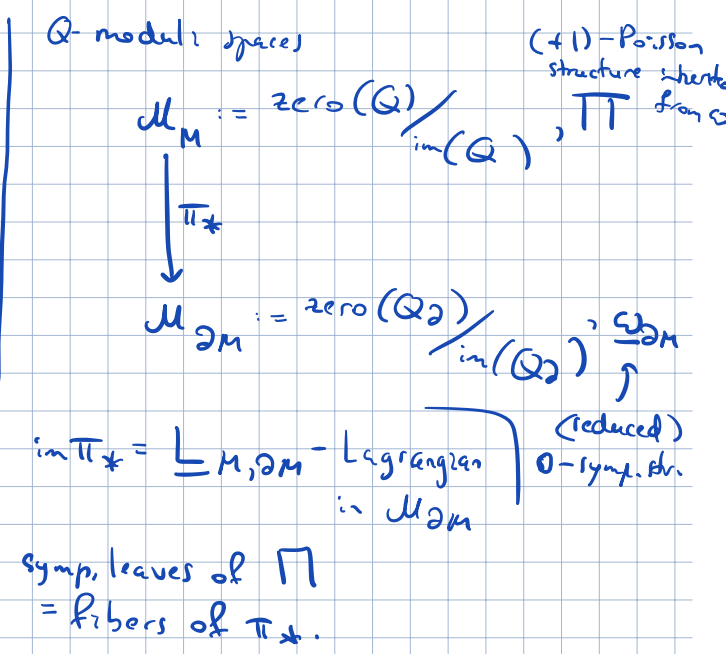 Q-moduli spaces
(+1)-Poisson
structure inherite
from ω
𝓜_M := zero(Q)/im(Q), Π
↓ π_*
𝓜_∂M := zero(Q_∂)/im(Q_∂), ω_∂M
(reduced)
0-symp. str.
im π_* = L_M,∂M - Lagrangian
in 𝓜_∂M
symp. leaves of Π
= fibers of π_*.